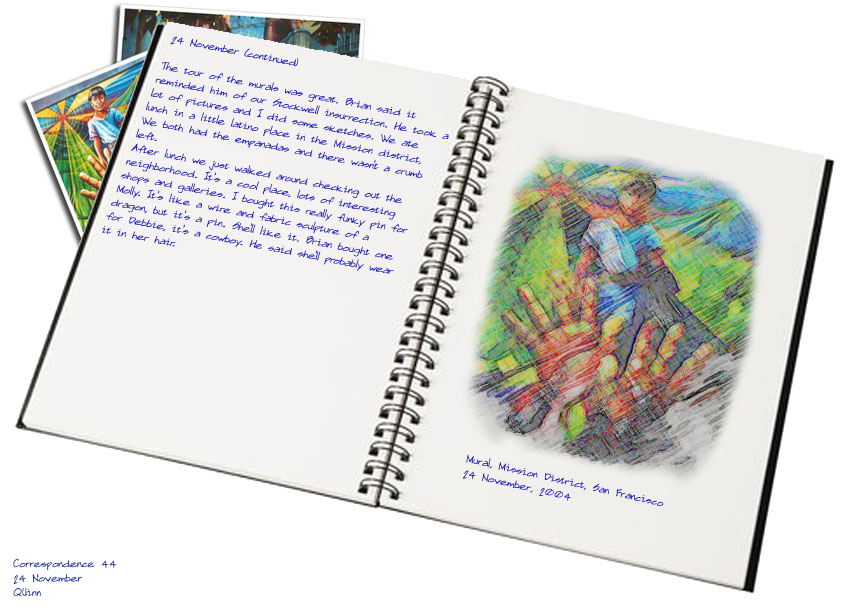 24 November (continued)
The tour of the murals was great. Brian said it
reminded him of our Stockwell insurrection. He took a
lot of pictures and I did some sketches. We ate
lunch in a little latino place in the Mission district,
We both had the empanadas and there wasn't a crumb
left.
After lunch we just walked around checking out the
neighborhood. It's a cool place, lots of interesting
shops and galleries. I bought this really funky pin for
Molly. It's like a wire and fabric sculpture of a
dragon, but it's a pin. She'll like it. Brian bought one
for Debbie, it's a cowboy. He said she'll probably wear
it in her hair.
Mural, Mission District, San Francisco
24 November, 2004
Correspondence 44
24 November
Quinn